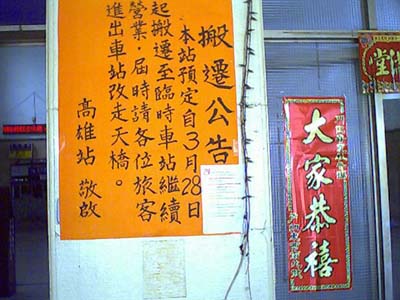 搬遷公告
本站預定自3月28日
起搬遷至臨時車站繼續
營業,屆時請各位旅客
進出車站改走天橋。
高雄站 敬啟
大家恭禧
堂